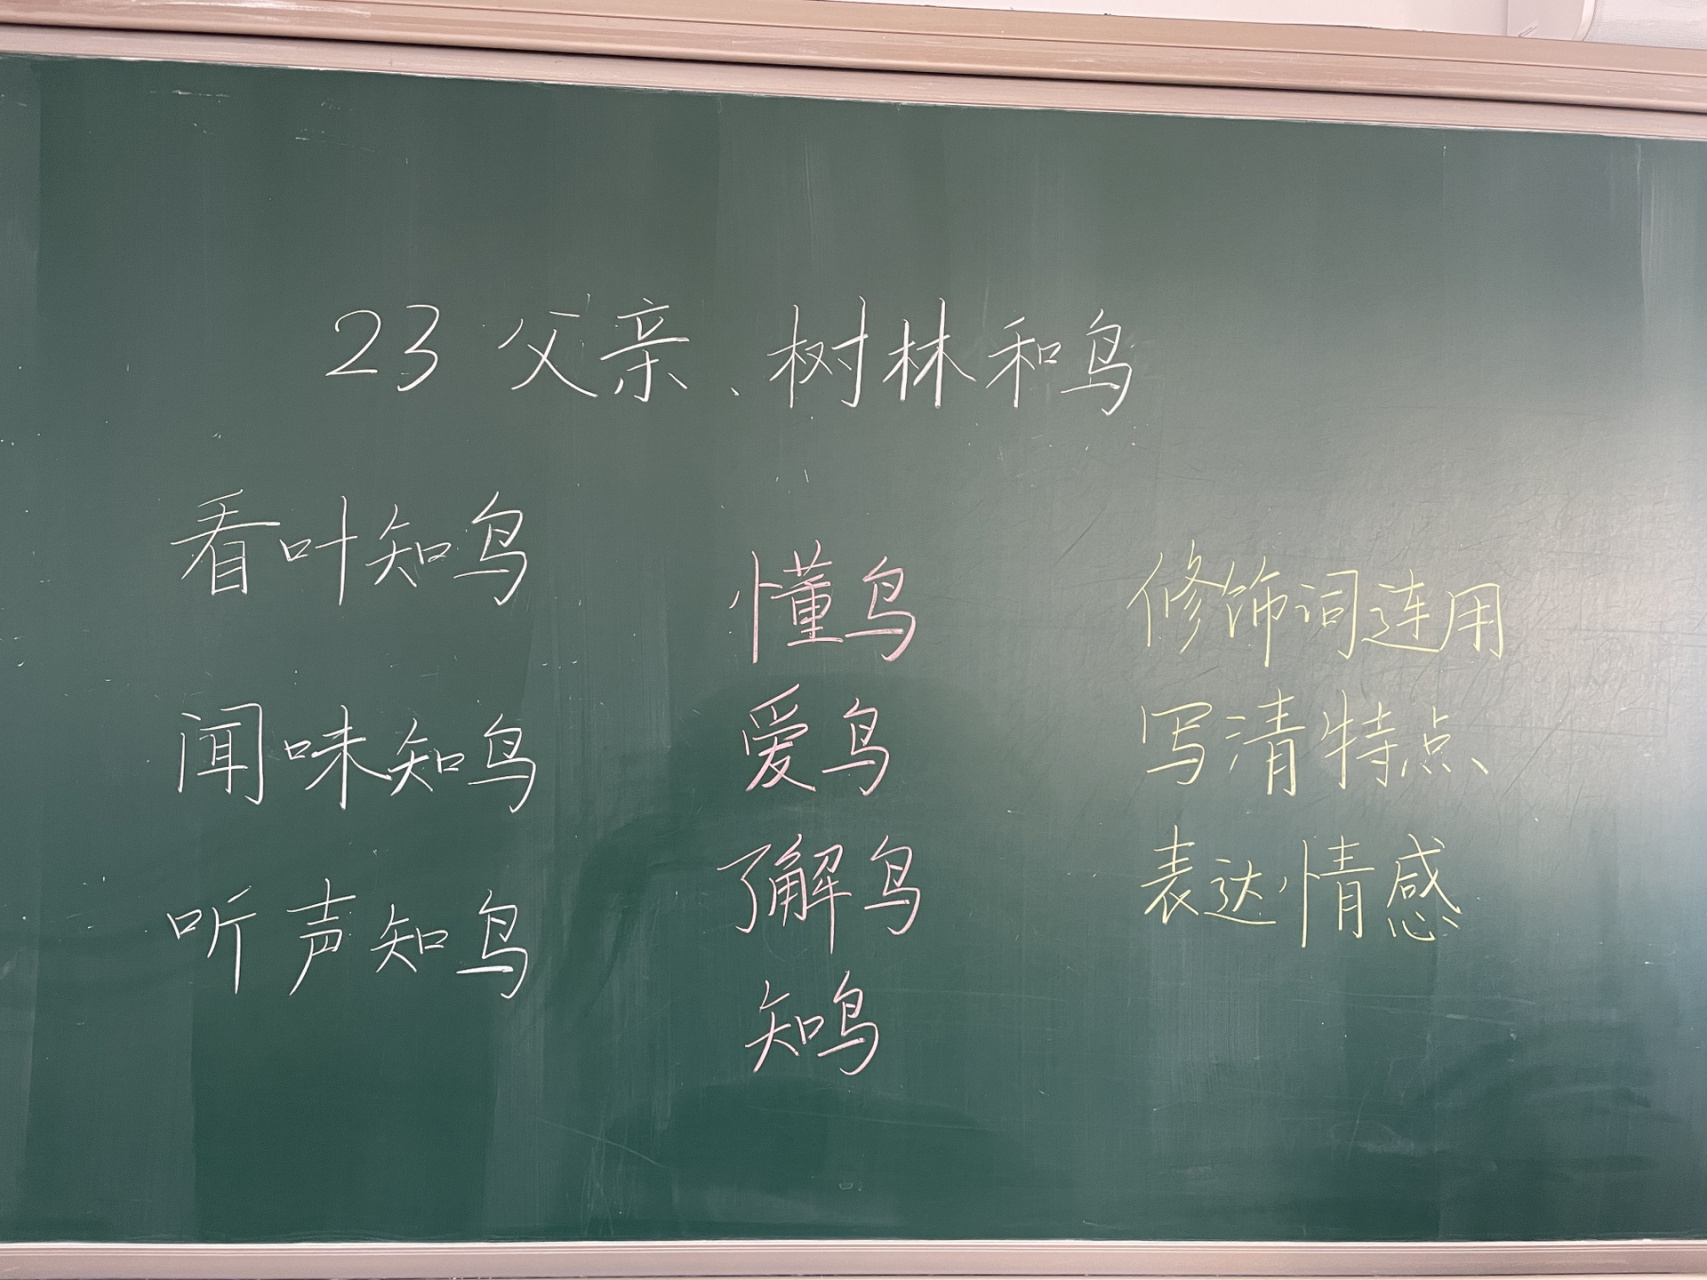 23 父亲、树林和鸟
看叶知鸟
闻味知鸟
听声知鸟
懂鸟
爱鸟
了解鸟
知鸟
修饰词连用
写清特点
表达情感